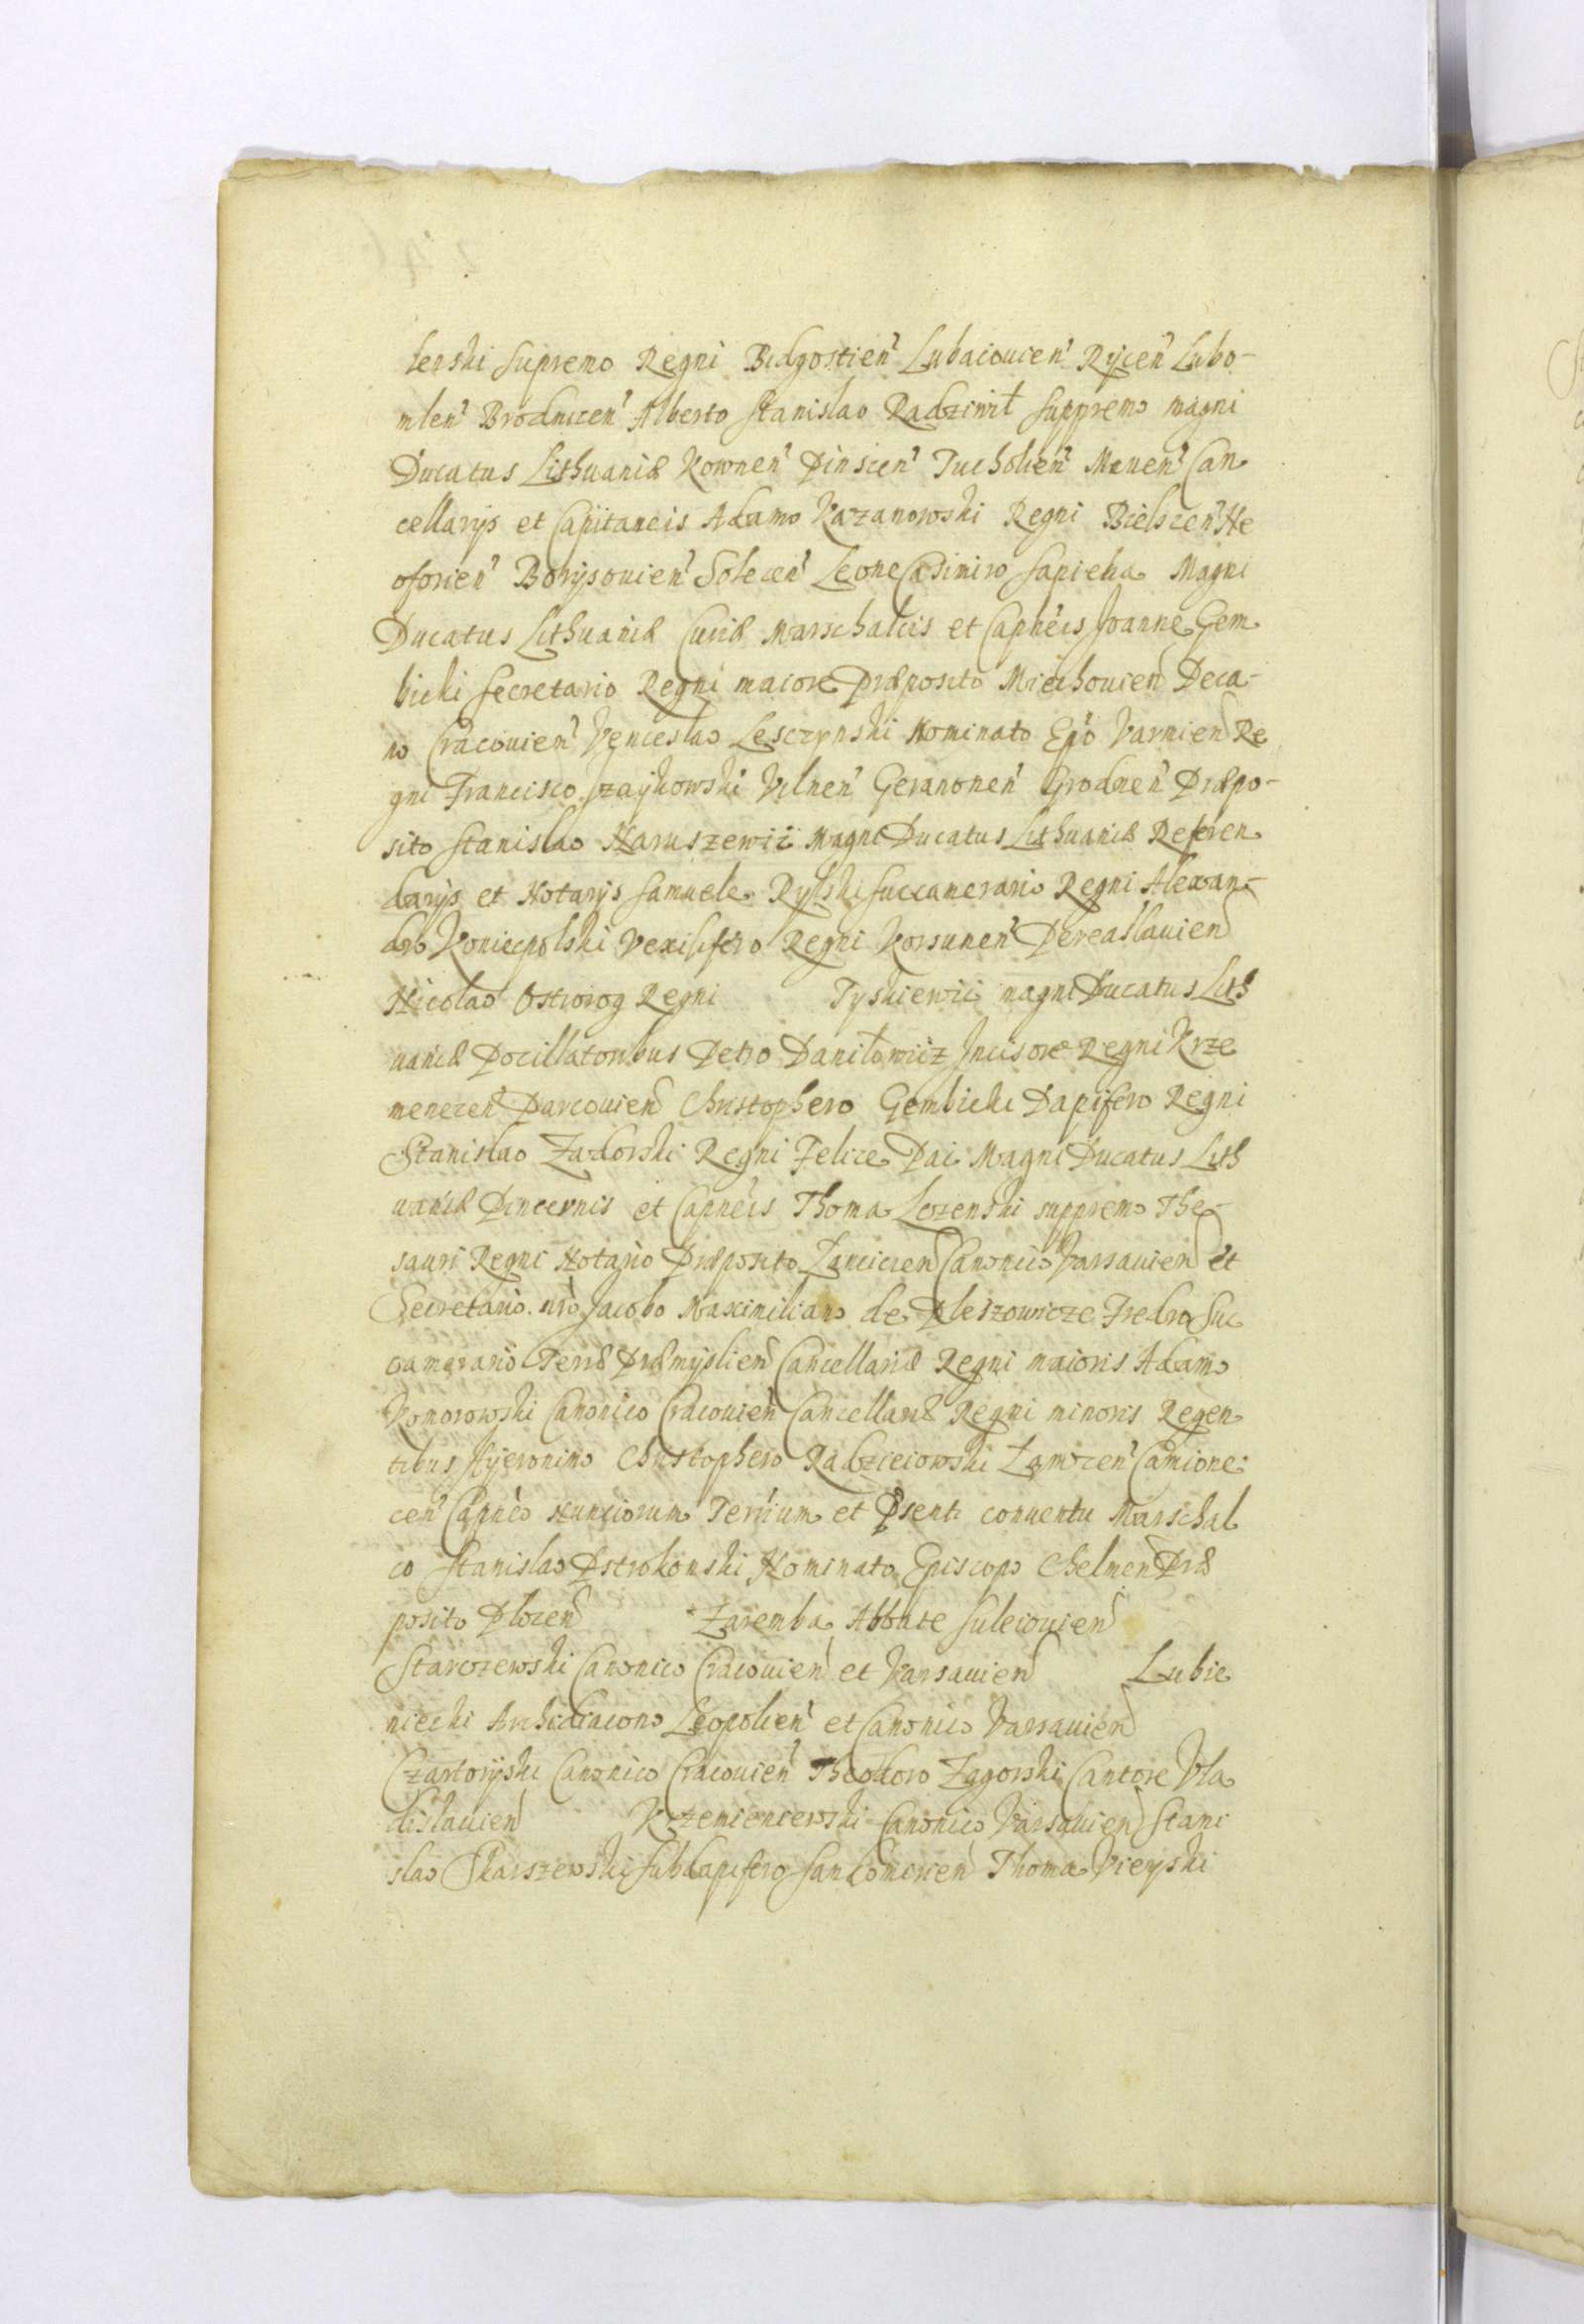 lenski Supremo Regni Bidgostien Lubaczouien Ryczen Lubo-
mlen Brodnicen Alberto Stanislao Radziwił Suppremo magni
Ducatus Lithuaniæ Kownen Pinscen Tucholien Meuen Can
cellarijs et Capitaneis Adamo Kazanowski Regni Bielscen Ne
oforien Borysouien Solecen Leone Casimiro Sapieha Magni
Ducatus Lithuaniæ Curiæ Marschalcis et Capneis Joanne Gem
bicki Secretario Regni maiore Præposito Miechouien Deca-
no Cracouien Venceslao Lesczynski Nominato Epo Varmien Re
gni Francisco Jzaykowski Vilnen Geranonen Grodnen Præpo-
sito Stanislao Naruszewic Magni Ducatus Lithuaniæ Referen
darijs et Notarijs Samuele Rylski Succamerario Regni Alexan-
dro Koniecpolski Vexilifero Regni Korsunen Pereaslauien
Nicolao Ostrorog Regni Tyskiewic magni Ducatus Lith
uaniæ Pocillatoribus Petro Daniłowicz Jncisore Regni Krze
menecen Parcouien Christophero Gembicki Dapifero Regni
Stanislao Zadorski Regni Felice Pac Magni Ducatus Lith
uaniæ Pincernis et Capneis Thoma Lezenski suppremo The-
sauri Regni Notario Præposito Lancicien Canonico Varsauien et
Secretario nro Jacobo Maximiliano de Pleszowicze Fredro Suc
camerario Terræ Præmyslien Cancellariæ Regni maioris Adamo
Komorowski Canonico Cracouien Cancellariæ Regni minoris Regen
tibus Hyeronimo Christophero Radzieiowski Łomzen Camione
cen Capneo Nunciorum Terrium et Psenti conuentu Marschal
co Stanislao Pstrokonski Nominato Episcopo Chelmen Præ
posito Plocen Zaremba Abbate Suleiouien
Starczewski Canonico Cracouien et Varsauien Lubie
niecki Archidiacono Leopolien et Canonico Varsauien
Czartoryski Canonico Cracouien Theodoro Zagorski Cantore Vla
dislauien Krzemieniewski Canonico Varsauien Stani
slao Skarszewski Subdapifero Sandomirien Thoma Vieyski